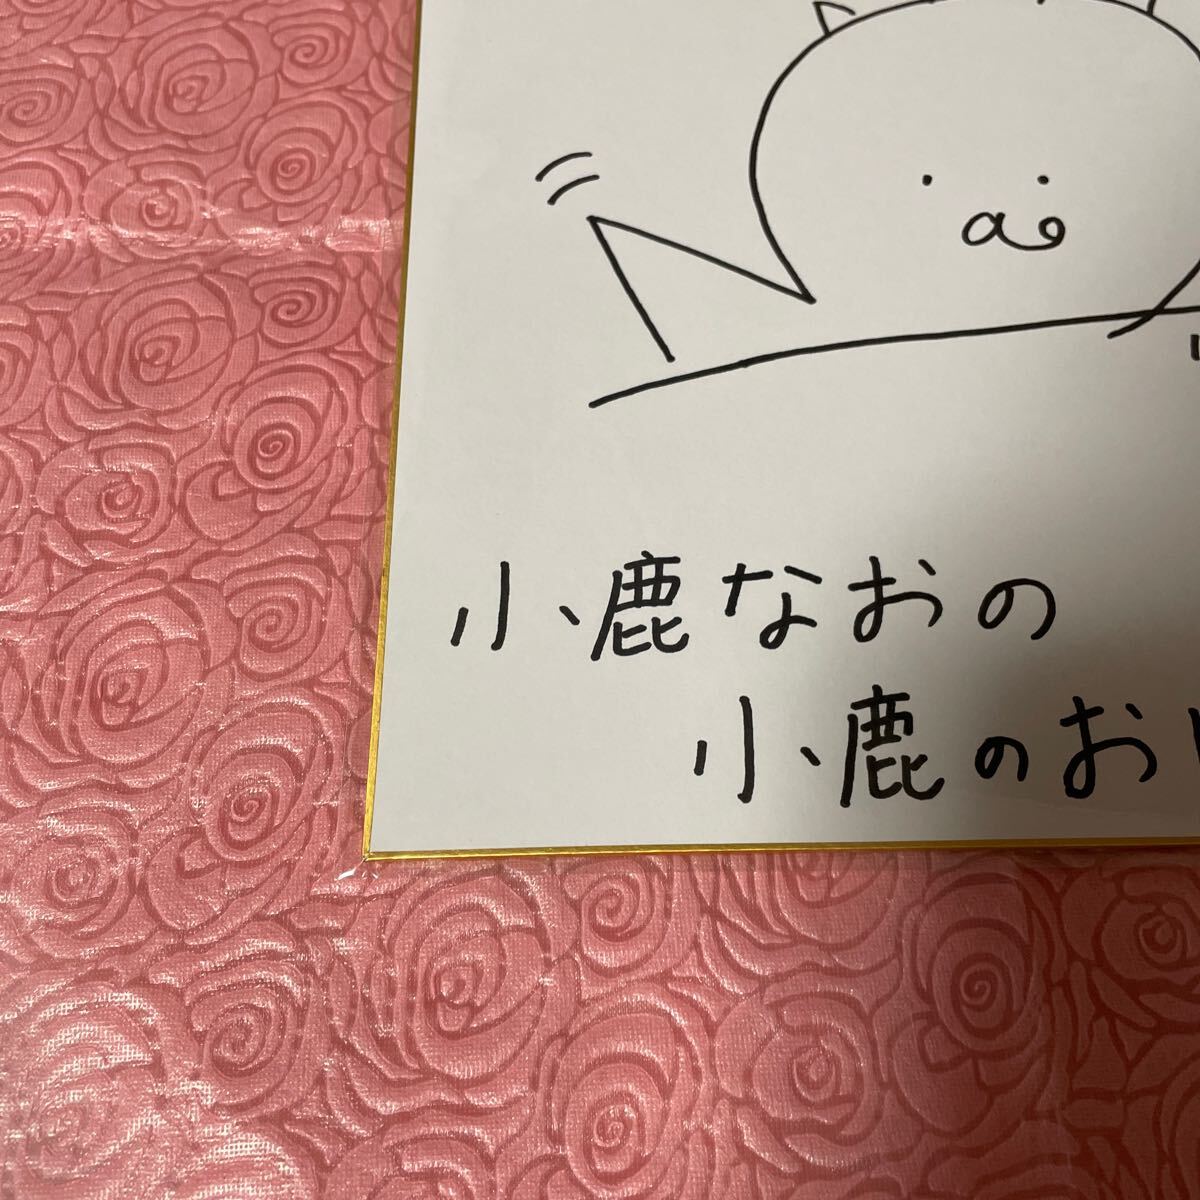 小鹿なおの
小鹿のお